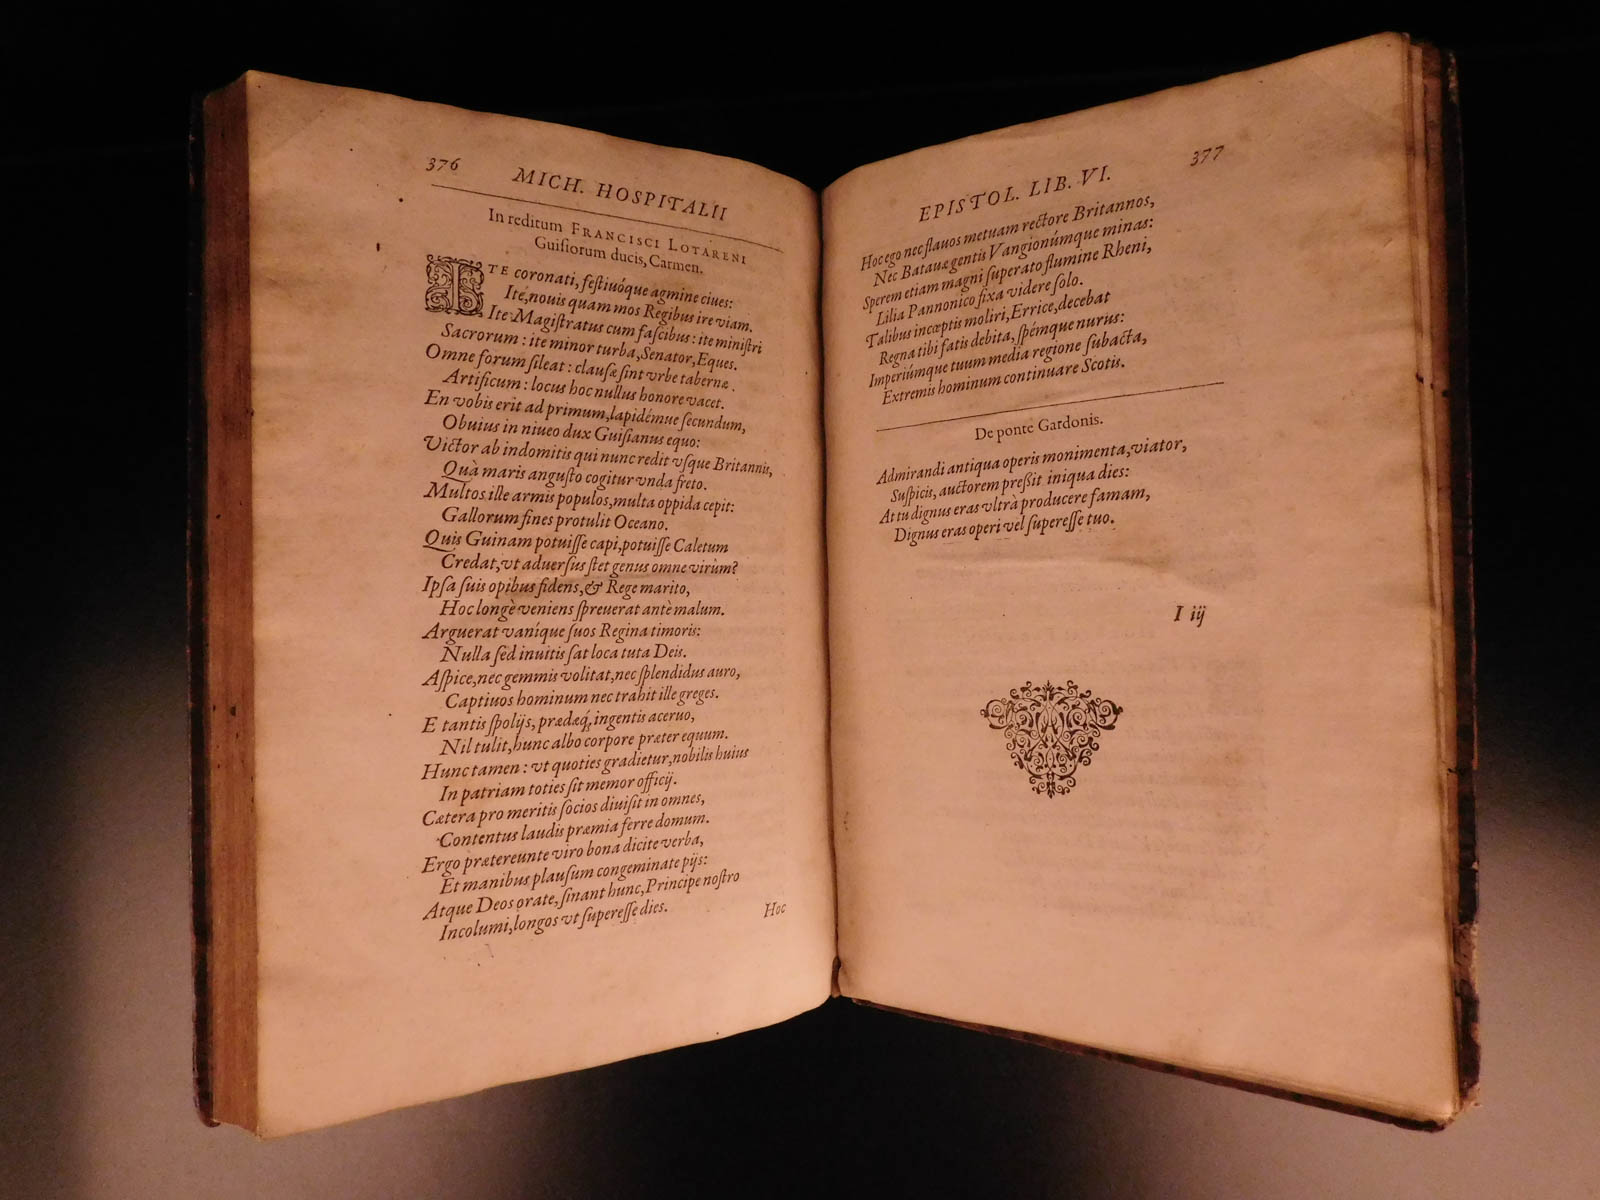 376
MICH. HOSPITALII
In reditum FRANCISCI LOTARENI
Guisiorum ducis, Carmen.
ITE coronati, festiuóque agmine ciues:
Ite, nouis quam mos Regibus ire viam.
Ite Magistratus cum fascibus: ite ministri
Sacrorum: ite minor turba, Senator, Eques.
Omne forum sileat: clausæ sint vrbe tabernæ
Artificum: locus hoc nullus honore vacet.
En vobis erit ad primum, lapidémue secundum,
Obuius in niueo dux Guisianus equo:
Victor ab indomitis qui nunc redit vsque Britannis,
Quà maris angusto cogitur vnda freto.
Multos ille armis populos, multa oppida cepit:
Gallorum fines protulit Oceano.
Quis Guinam potuisse capi, potuisse Caletum
Credat, vt aduersus stet genus omne virùm?
Ipsa suis opibus fidens, & Rege marito,
Hoc longè veniens spreuerat antè malum.
Arguerat vaníque suos Regina timoris:
Nulla sed inuitis sat loca tuta Deis.
Aspice, nec gemmis volitat, nec splendidus auro,
Captiuos hominum nec trahit ille greges.
E tantis spolijs, prædaq; ingentis aceruo,
Nil tulit, hunc albo corpore præter equum.
Hunc tamen: vt quoties gradietur, nobilis huius
In patriam toties sit memor officij.
Cætera pro meritis socios diuisit in omnes,
Contentus laudis præmia ferre domum.
Ergo prætereunte viro bona dicite verba,
Et manibus plausum congeminate pijs:
Atque Deos orate, sinant hunc, Principe nostro
Incolumi, longos vt superesse dies.
Hoc
EPISTOL. LIB. VI.
377
Hoc ego nec flauos metuam rectore Britannos,
Nec Batauæ gentis Vangionúmque minas:
Sperem etiam magni superato flumine Rheni,
Lilia Pannonico fixa videre solo.
Talibus incœptis moliri, Errice, decebat
Regna tibi fatis debita, spémque nurus:
Imperiúmque tuum media regione subacta,
Extremis hominum continuare Scotis.
De ponte Gardonis.
Admirandi antiqua operis monimenta, viator,
Suspicis, auctorem preßit iniqua dies:
At tu dignus eras vltrà producere famam,
Dignus eras operi vel superesse tuo.
I iij